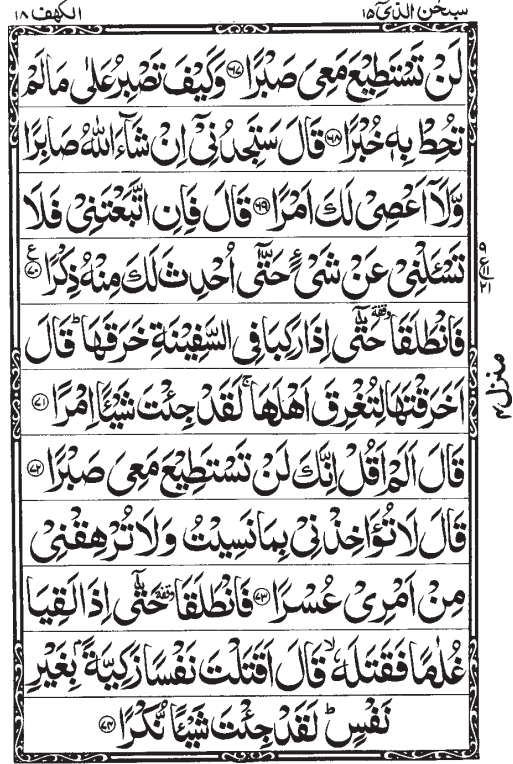 سبحٰن الذیٓ ۱۵
الكهف ۱۸
لَنْ تَسْتَطِيْعَ مَعِیَ صَبْرًا ﴿۶۷﴾ وَكَيْفَ تَصْبِرُ عَلٰى مَا لَمْ
تُحِطْ بِهٖ خُبْرًا ﴿۶۸﴾ قَالَ سَتَجِدُنِیْۤ اِنْ شَآءَ اللّٰهُ صَابِرًا
وَّلَاۤ اَعْصِیْ لَكَ اَمْرًا ﴿۶۹﴾ قَالَ فَاِنِ اتَّبَعْتَنِیْ فَلَا
تَسْـَٔلْنِیْ عَنْ شَیْءٍ حَتّٰۤى اُحْدِثَ لَكَ مِنْهُ ذِكْرًا ﴿۷۰﴾ ع
۹
ع ۱۱
۲۱
فَانْطَلَقَا وقفة حَتّٰۤى اِذَا رَكِبَا فِی السَّفِيْنَةِ خَرَقَهَا ؕ قَالَ
اَخَرَقْتَهَا لِتُغْرِقَ اَهْلَهَا ۚ لَقَدْ جِئْتَ شَيْـًٔا اِمْرًا ﴿۷۱﴾
منزل ۴
قَالَ اَلَمْ اَقُلْ اِنَّكَ لَنْ تَسْتَطِيْعَ مَعِیَ صَبْرًا ﴿۷۲﴾
قَالَ لَا تُؤَاخِذْنِیْ بِمَا نَسِيْتُ وَلَا تُرْهِقْنِیْ
مِنْ اَمْرِیْ عُسْرًا ﴿۷۳﴾ فَانْطَلَقَا وقفة حَتّٰۤى اِذَا لَقِيَا
غُلٰمًا فَقَتَلَهٗ ۙ قَالَ اَقَتَلْتَ نَفْسًا زَكِيَّةًۢ بِغَيْرِ
نَفْسٍ ؕ لَقَدْ جِئْتَ شَيْـًٔا نُّكْرًا ﴿۷۴﴾